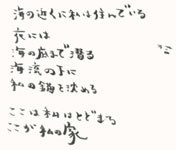 海の近くに私は住んでいる
夜には
海の底まで潜る
海流の下に
私の錨を沈める
ここに私はとどまる
ここが私の家